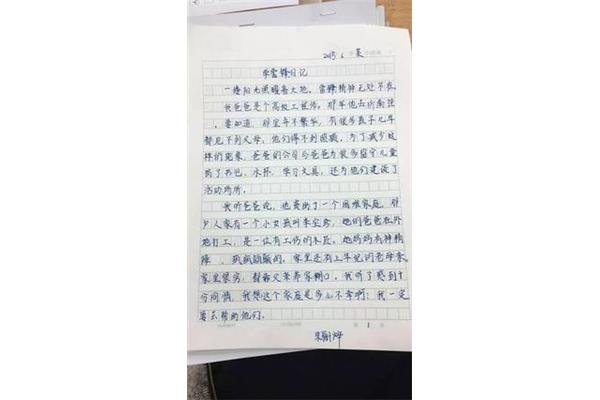 2015 6
学雷锋日记
一缕阳光照耀着大地。雷锋精神无处不在。
我爸爸是个高级工程师。那年他去济南
要知道，那里年不繁华，有很多孩子几年
都见不到父母，他们得不到照顾，为了减少这
样的现象，爸爸的公司与爸爸为很多留守儿童
买了书包、水杯、学习文具，还为他们建设了
活动场所。
我听爸爸说，也资助了一个困难家庭，那
户人家有一个小女孩叫李尘，她的爸爸在外
地打工，是一位有工伤的木匠。她妈妈有精神
障、疯疯颠颠的。家里还有上年纪的爷爷
家里很穷，都靠父亲养家糊口。我听了感到十
分同情，我想这个家庭是多么不幸啊！我一定
要去帮助他们。
第 1 页
朱